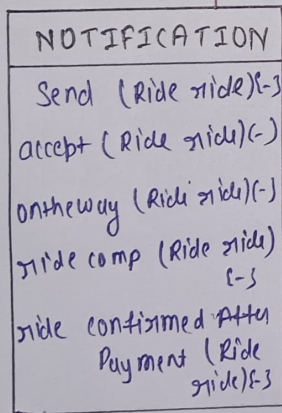 NOTIFICATION
Send (Ride ride){-}
accept (Ride ride){-}
ontheway (Ride ride){-}
ride comp (Ride ride)
{-}
ride confirmed After
Payment (Ride
ride){-}